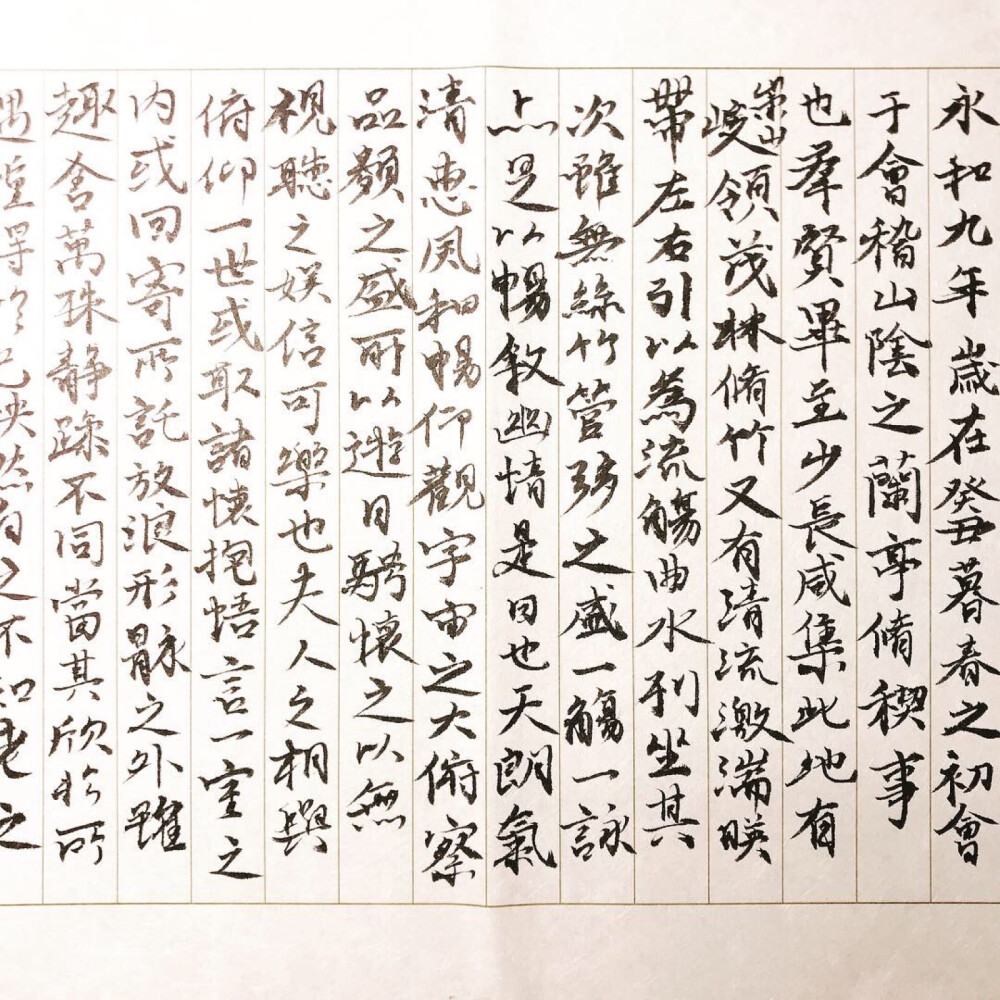 永和九年歲在癸丑暮春之初會
于會稽山陰之蘭亭脩稧事
也羣賢畢至少長咸集此地有
崇山峻領茂林脩竹又有清流激湍暎
帶左右引以為流觴曲水列坐其
次雖無絲竹管弦之盛一觴一詠
亦足以暢敘幽情是日也天朗氣
清惠風和暢仰觀宇宙之大俯察
品類之盛所以遊目騁懷足以
視聽之娛信可樂也夫人之相與
俯仰一世或取諸懷抱悟言一室之
內或因寄所託放浪形骸之外雖
趣舍萬殊静躁不同當其欣於所
遇蹔得於己怏然自足不知老之